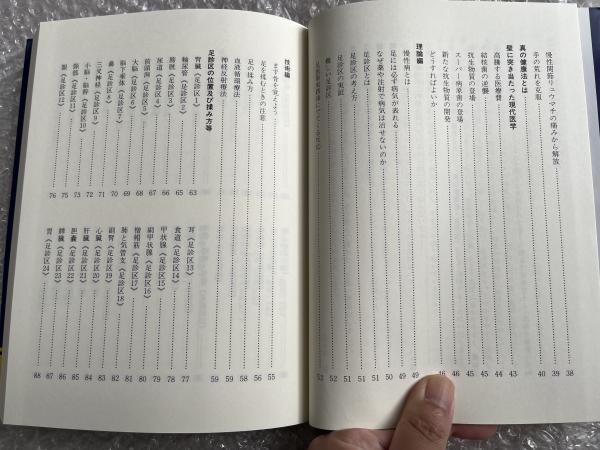 慢性関節リュウマチの痛みから解放 38
手の荒れを克服 39
真の健康法とは 40
壁に突き当たった現代医学 43
高騰する医療費 44
結核菌の逆襲 45
抗生物質の登場 45
スーパー病原菌の登場 46
新たな抗生物質の開発 46
どうすればよいか
理論編
慢性病とは 49
足には必ず病気が表れる 49
なぜ薬や注射で病気は治せないのか 50
足診区とは 51
足診区の考え方 51
足診区の実証 52
難しい足診区 52
技術編
まず骨を覚えよう 55
足を揉むときの注意 56
足の揉み方 58
血液循環療法 59
神経反射療法 59
足診区の位置及び揉み方等
腎臓《足診区1》 63
輸尿管《足診区2》 65
膀胱《足診区3》 66
尿道《足診区4》 67
前額洞《足診区5》 68
大脳《足診区6》 69
脳下垂体《足診区7》 70
鼻《足診区8》 71
三叉神経《足診区9》 72
小脳・脳幹《足診区10》 73
頸部《足診区11》 75
眼《足診区12》 76
耳《足診区13》 77
食道《足診区14》 78
甲状腺《足診区15》 79
副甲状腺《足診区16》 79
僧帽筋《足診区17》 80
肺と気管支《足診区18》 81
副腎《足診区19》 82
心臓《足診区20》 83
肝臓《足診区21》 84
胆嚢《足診区22》 85
脾臓《足診区23》 86
胃《足診区24》 88